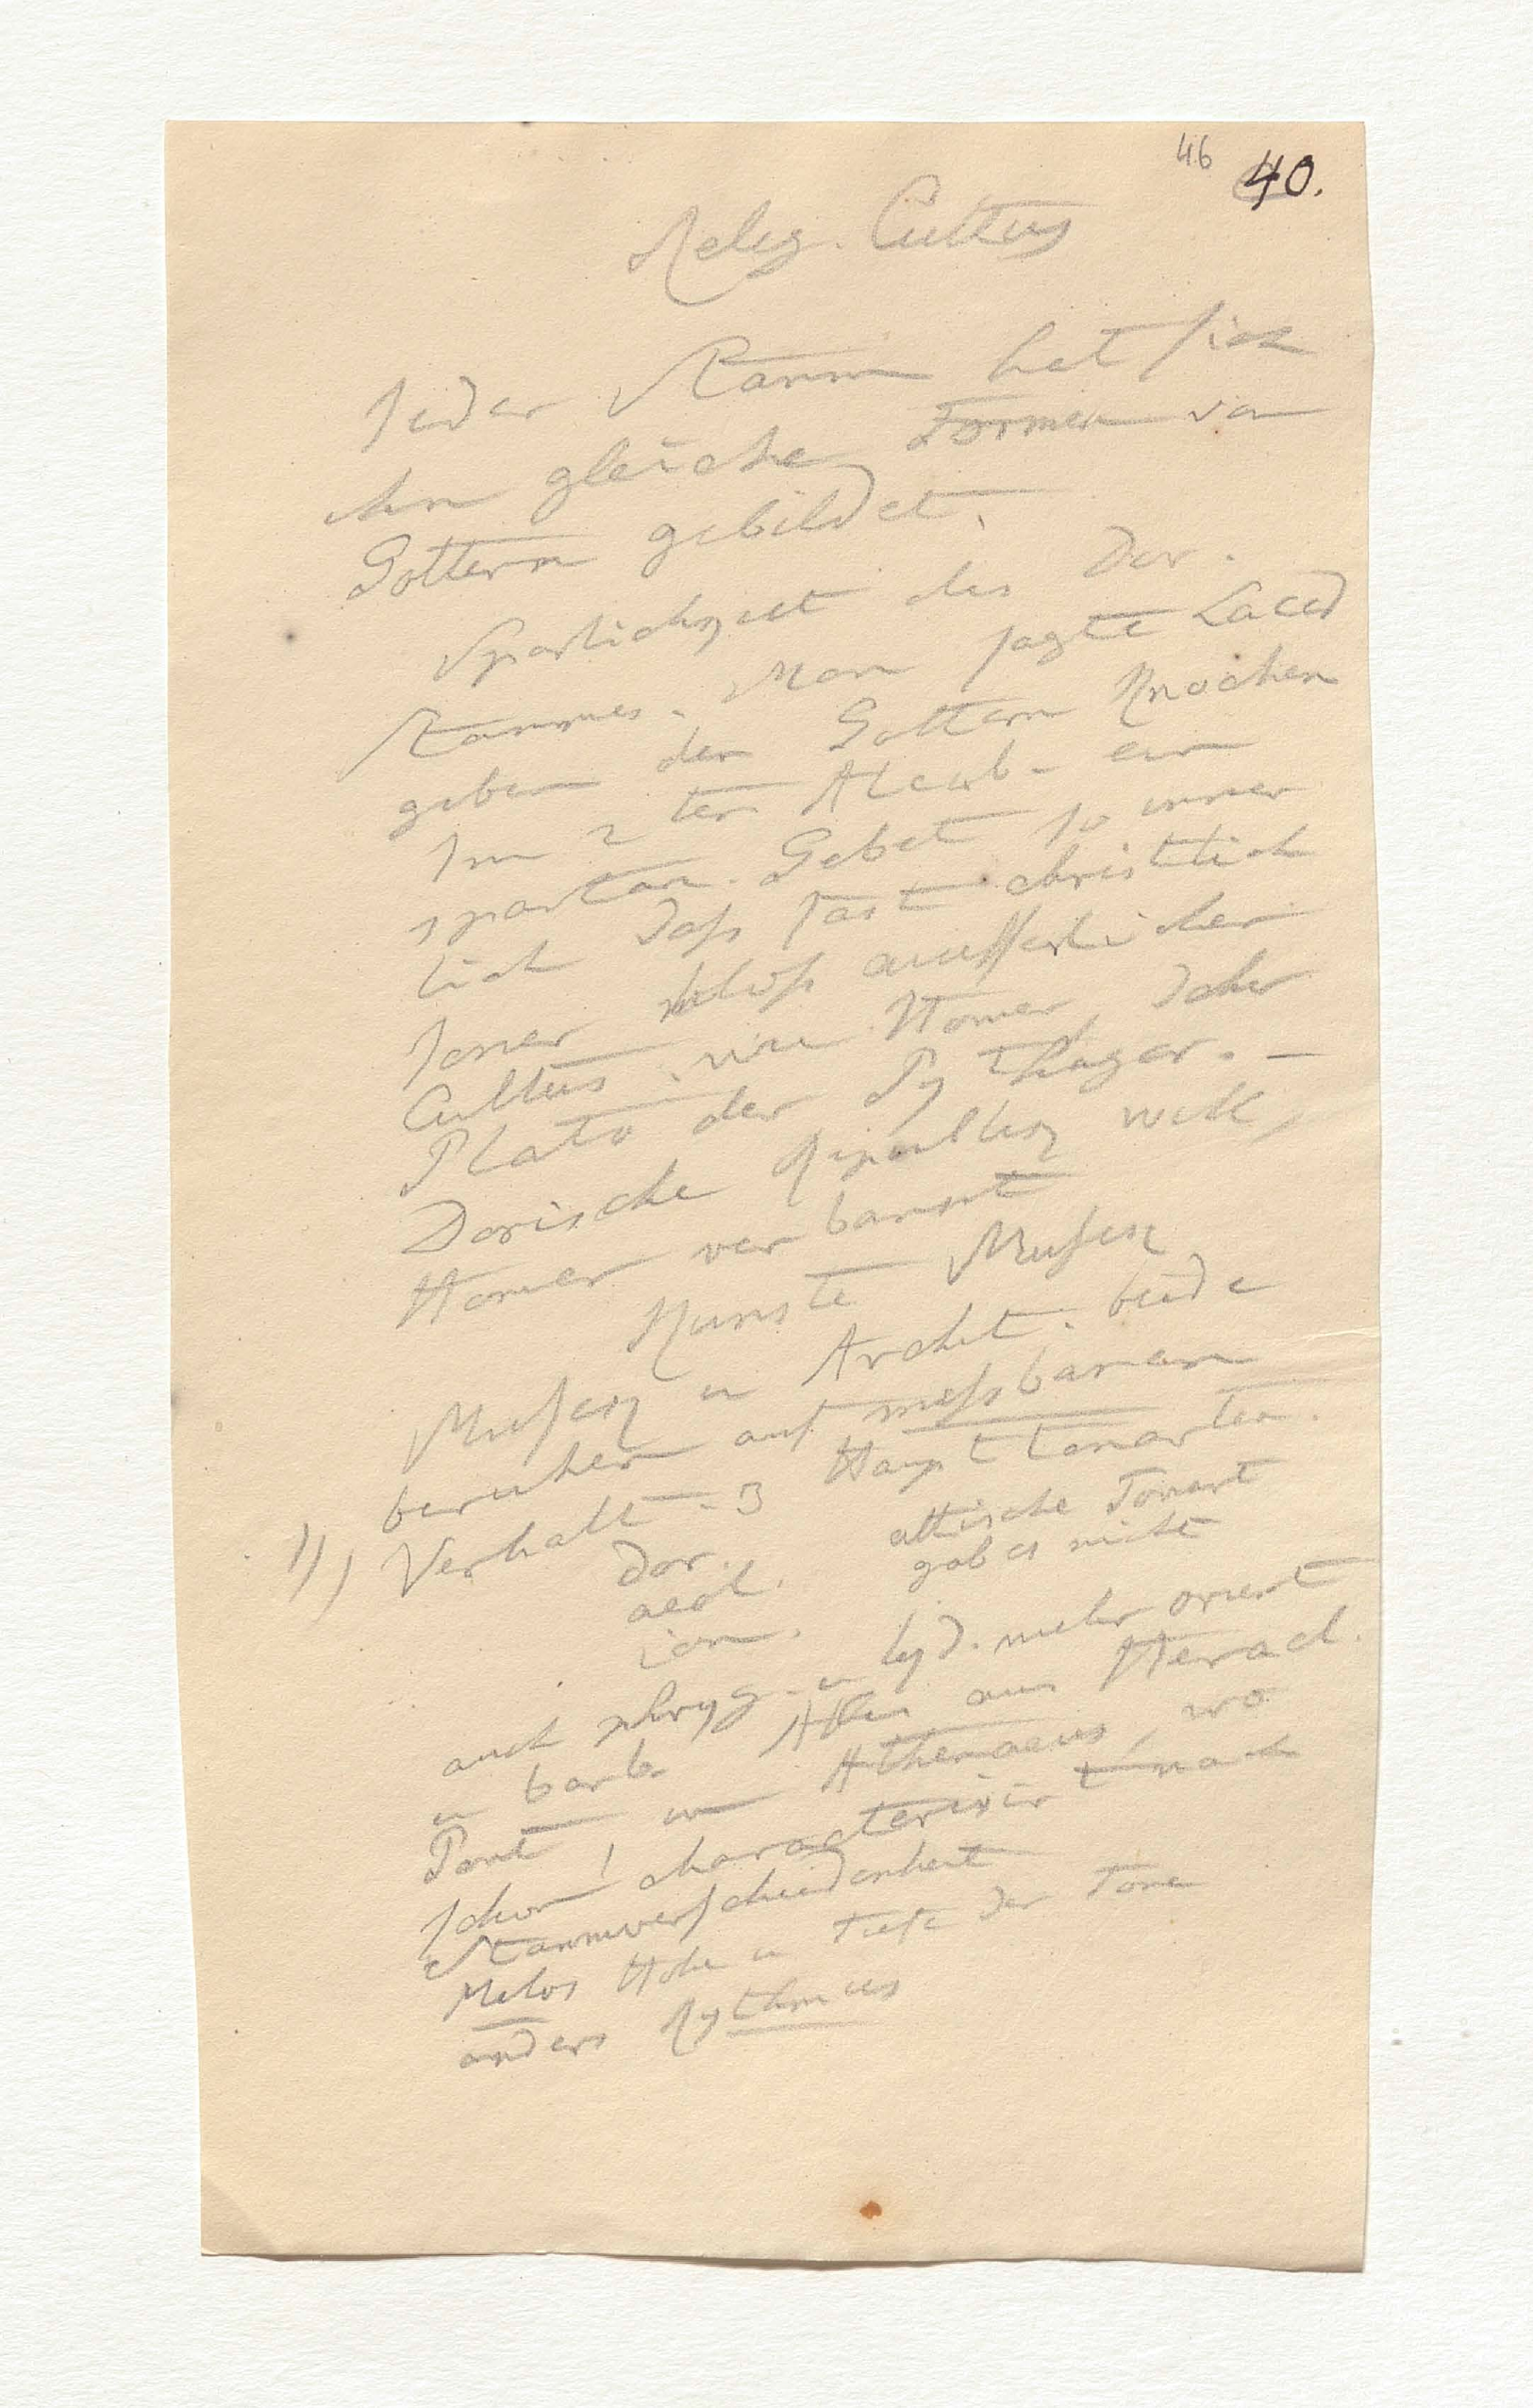 46 40.
Relig. Cultus
Jeder Stamm hat sich
ihm gleiche Formen von
Göttern gebildet.
Sparlichkeit des Dor.
Stammes. Man sagte Laced
geben den Göttern Knochen
Im 2ten Alcib. ein
spartan. Gebet so inner
lich daß fast christlich
Joner bloß äußerlicher
Cultus. wie Homer, daher
Plato der Pythagor. –
Dorische Republik will,
Homer verbannt
Künste Musik
Musik u Archit. beide
beruhen auf meßbaren
Verhält. 3 Haupttonarten.
11)
Dor.
aeol. attische Tonart
ion. gab es nicht
auch phryg. u lyd. mehr orient
u barb. Alles aus Heracl.
Pont im Athenaeus, wo
schon! characterisirt nach
Stammverschiedenheit
Melos Höhe u Tiefe der Töne
anders Rythmus